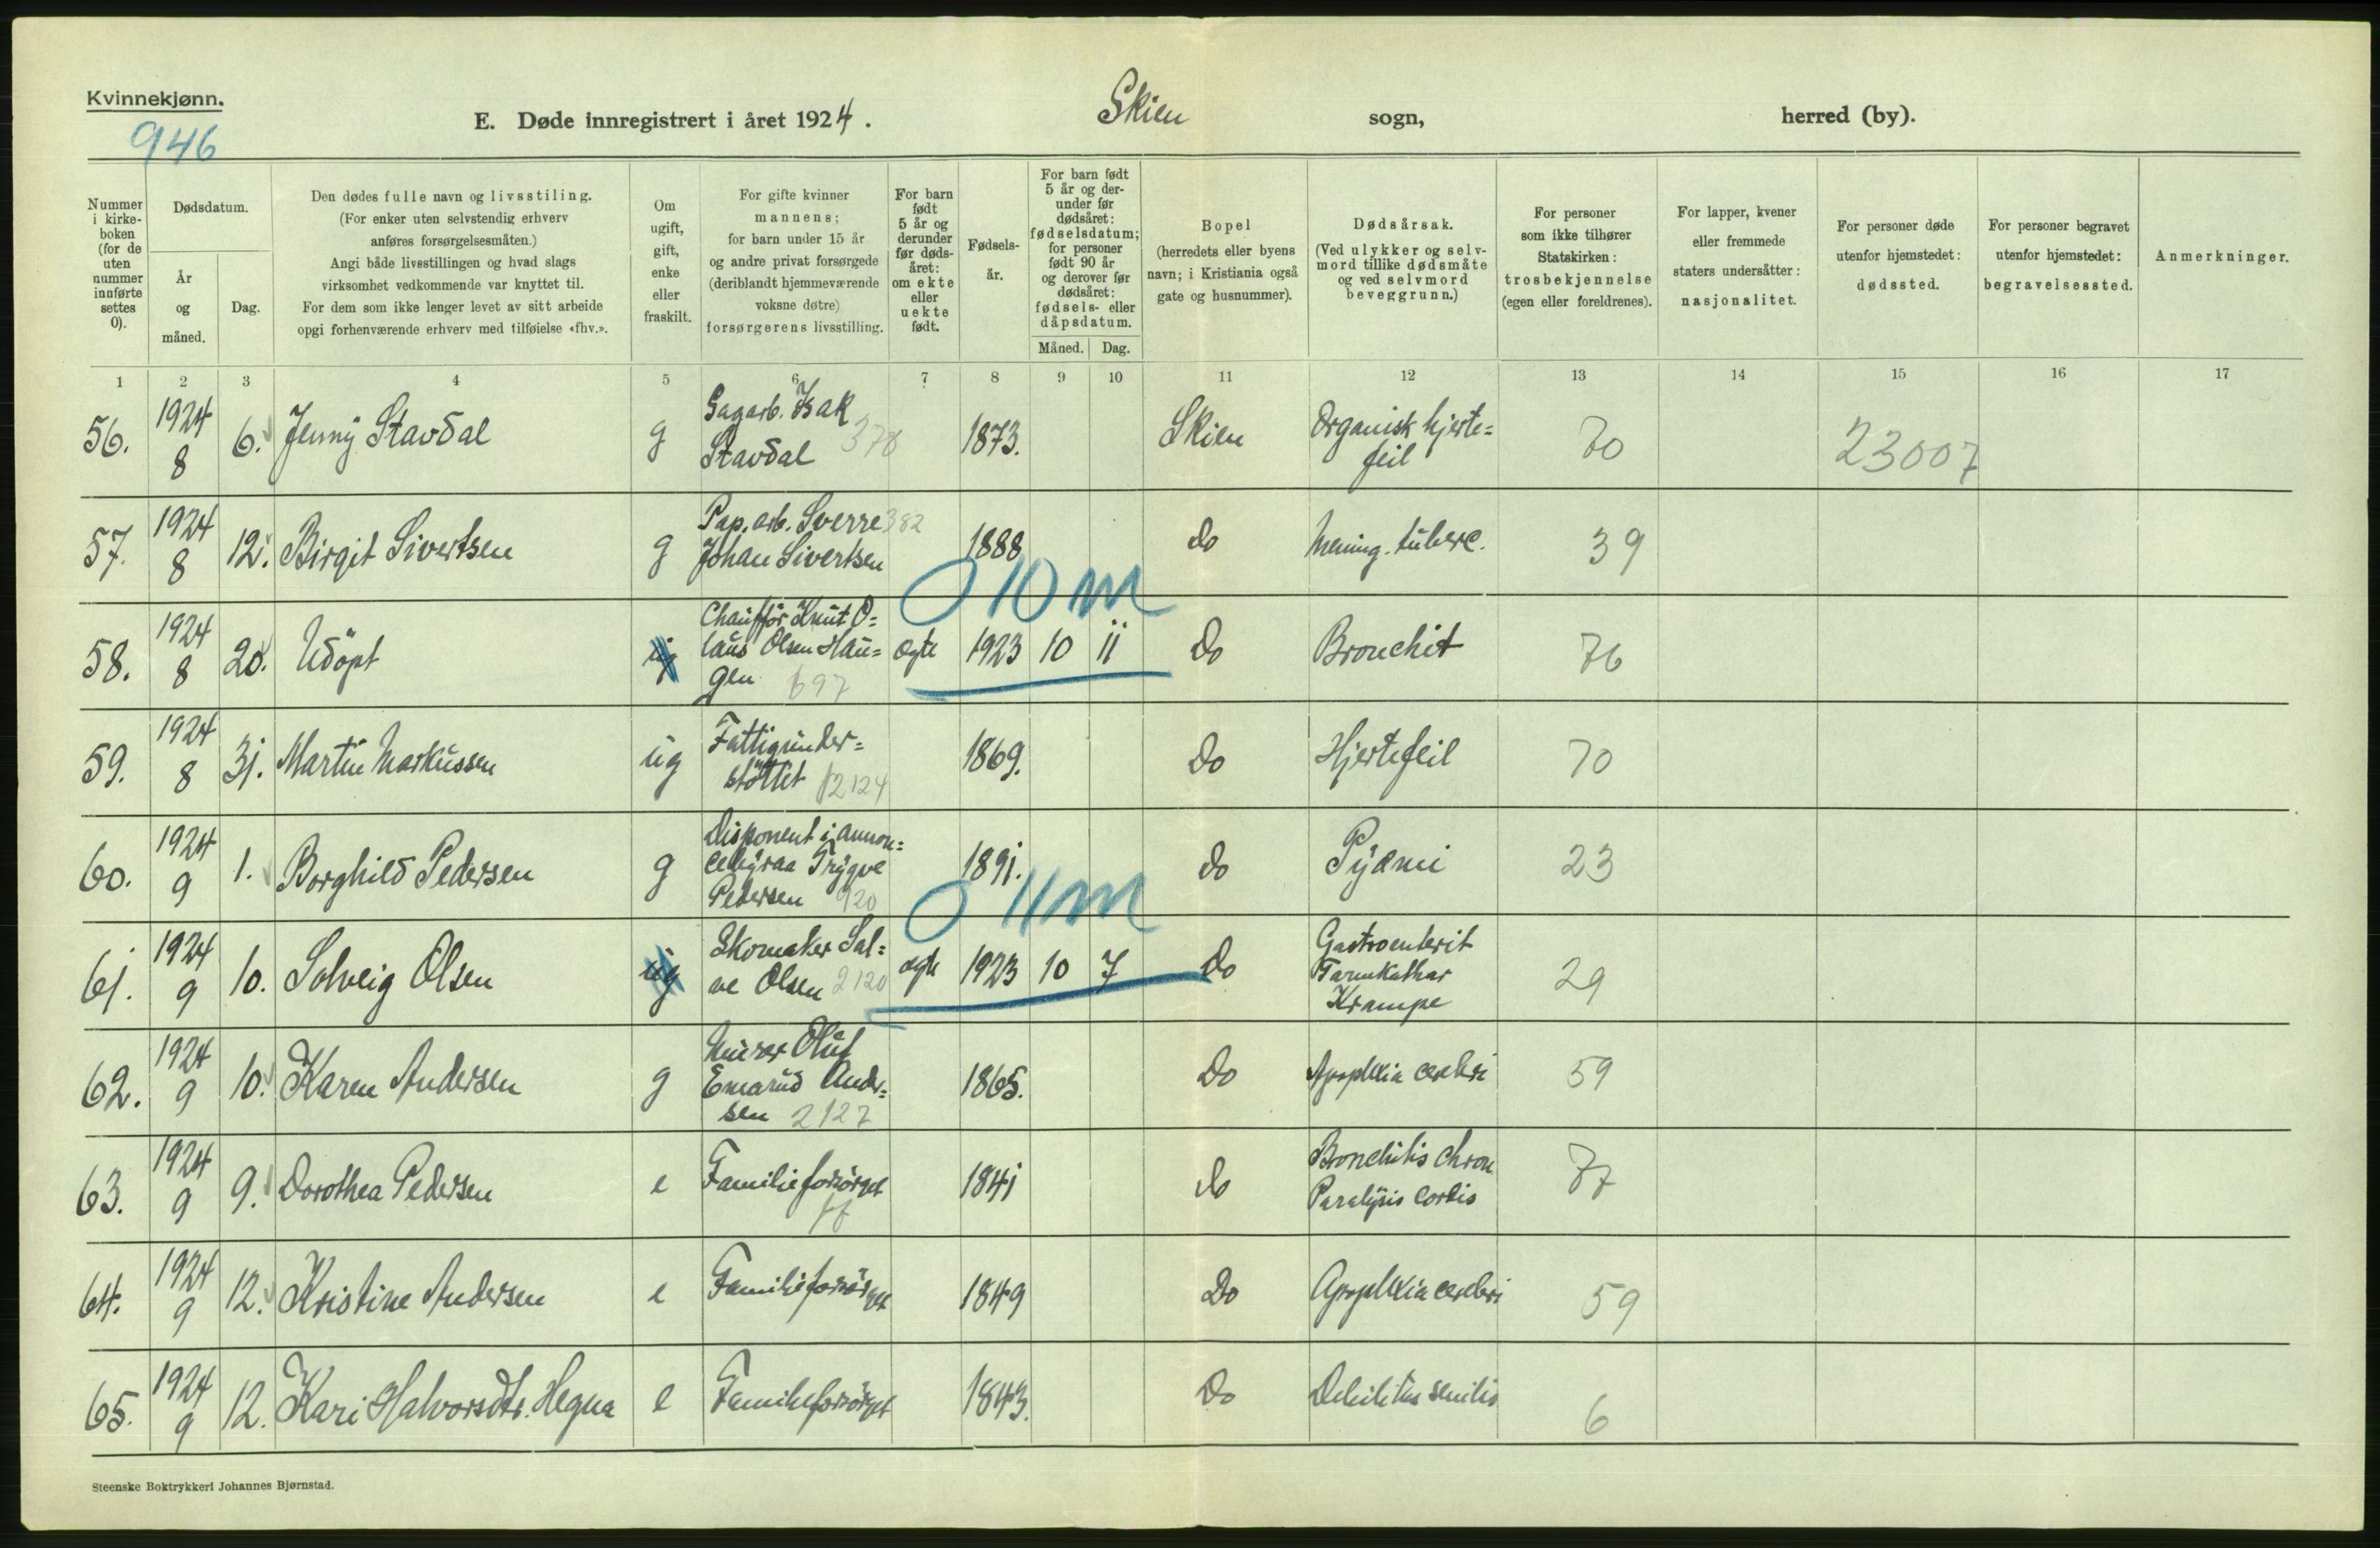 Kvinnekjønn.
946
E. Døde innregistrert i året 1924. Skien sogn, herred (by).
Nummer i kirke-boken (for de uten nummer innførte settes 0).
Dødsdatum.
År og måned.
Dag.
Den dødes fulle navn og livsstiling.
(For enker uten selvstendig erhverv
anføres forsørgelsesmåten.)
Angi både livsstillingen og hvad slags
virksomhet vedkommende var knyttet til.
For dem som ikke lenger levet av sitt arbeide
opgi forhenværende erhverv med tilføielse «fhv.».
Om ugift, gift, enke eller fraskilt.
For gifte kvinner
mannens;
for barn under 15 år
og andre privat forsørgede
(deriblandt hjemmeværende
voksne døtre)
forsørgerens livsstilling.
For barn født 5 år og derunder før døds-året: om ekte eller uekte født.
Fødsels-år.
For barn født 5 år og der-under før dødsåret: fødselsdatum; for personer født 90 år og derover før dødsåret: fødsels- eller dåpsdatum.
Måned. Dag.
Bopel
(herredets eller byens
navn; i Kristiania også
gate og husnummer).
Dødsårsak.
(Ved ulykker og selv-
mord tillike dødsmåte
og ved selvmord
beveggrunn.)
For personer
som ikke tilhører
Statskirken:
trosbekjennelse
(egen eller foreldrenes).
For lapper, kvener
eller fremmede
staters undersåtter:
nasjonalitet.
For personer døde
utenfor hjemstedet:
dødssted.
For personer begravet
utenfor hjemstedet:
begravelsessted.
Anmerkninger.
1 2 3 4 5 6 7 8 9 10 11 12 13 14 15 16 17
56. 1924 8 6. Jenny Stavdal g Sagarb. Isak Stavdal 378 1873. Skien Organisk hjerte= feil 70 23007
57. 1924 8 12. Birgit Sivertsen g Pap. arb. Sverre 382 Johan Sivertsen 1888 do Mening. tuberc. 39
0 10 m
58. 1924 8 20. Udöpt ug Chaufför Knut O= laus Olsen Hau= gen 697 ægte 1923 10 11 Do Bronchit 76
59. 1924 8 31. Martin Markussen ug Fattigunder= støttet 2124 1869. Do Hjertefeil 70
60. 1924 9 1. Borghild Pedersen g Disponent i annon= cebyraa Trygve Pedersen 920 1891. do Pyæmi 23
0 11 m
61. 1924 9 10. Solveig Olsen ug Skomaker Sal= ve Olsen 2120 ægte 1923 10 7 Do Gastroenterit Tarmkathar Krampe 29
62. 1924 9 10. Karen Andersen g Murer Oluf Ander= sen 2127 1865. Do Apoplexia cerebri 59
63. 1924 9 9. Dorothea Pedersen e Familieforsørget 1841 do Bronchitis chron. Paralysis cordis 77
64. 1924 9 12. Kristine Andersen e Familieforsørget 1849 Do Apoplexia cerebri 59
65. 1924 9 12. Kari Halvorsdtr. Hegna e Familieforsørget 1843. Do Debilitas senilis 6
Steenske Boktrykkeri Johannes Bjørnstad.